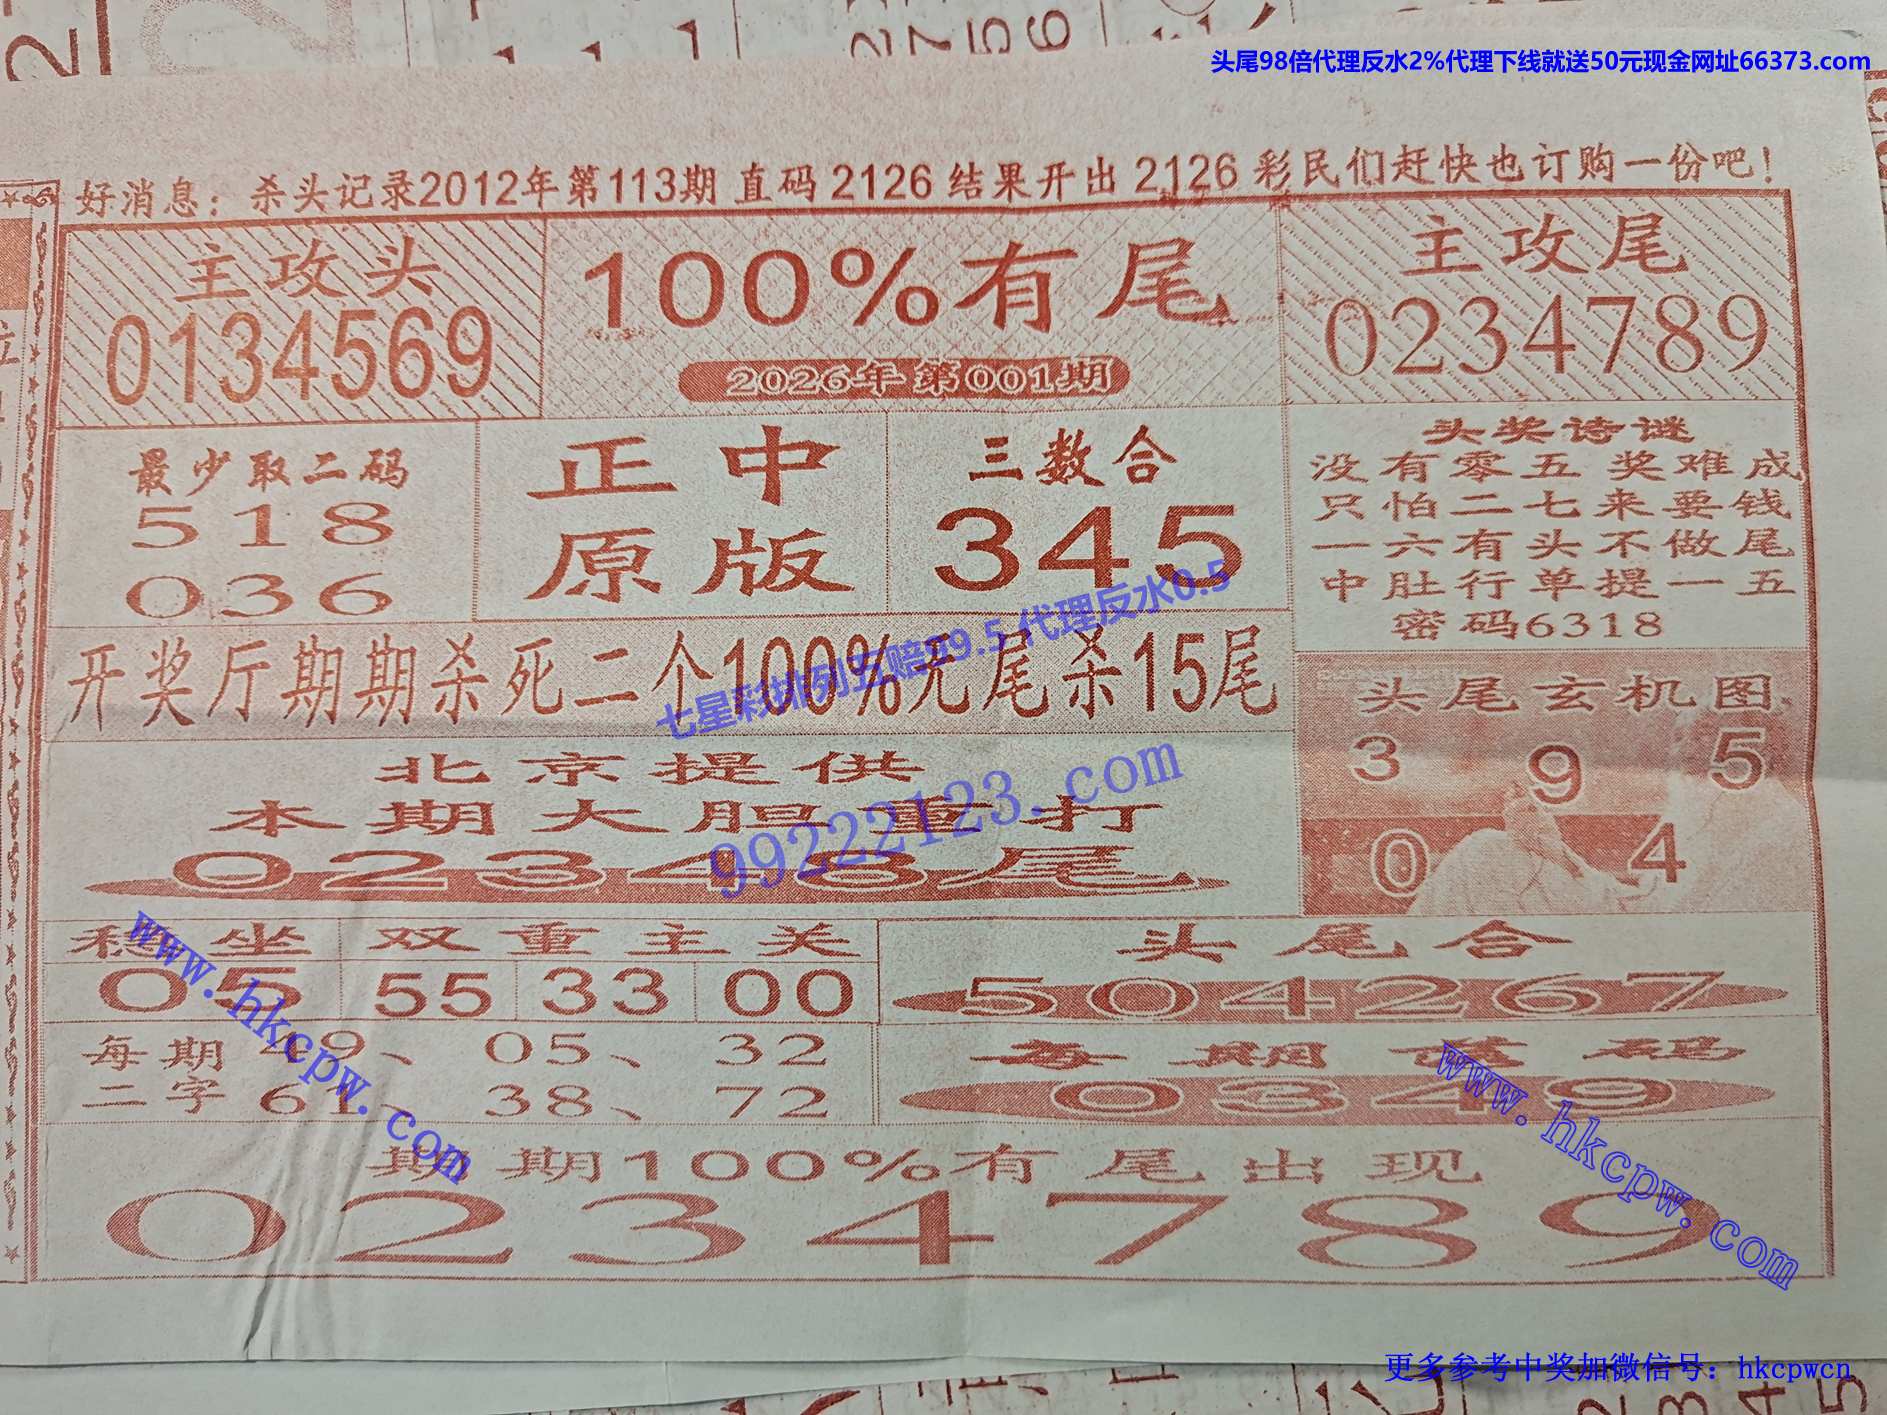 头尾98倍代理反水2%代理下线就送50元现金网址66373.com
好消息：杀头记录2012年第113期 直码 2126 结果开出 2126 彩民们赶快也订购一份吧！
主攻头
0134569
100%有尾
2026年第001期
主攻尾
0234789
最少取二码
518
036
正中
原版
三数合
345
头奖诗谜
没有零五奖难成
只怕二七来要钱
一六有头不做尾
中肚行单提一五
密码6318
开奖厅期期杀死二个100%无尾杀15尾
七星彩排列五赔99.5 代理反水0.5
头尾玄机图
3 9 5
0 4
北京提供
本期大胆重打
02348尾
99222123.com
稳坐
双重主关
05 55 33 00
头尾合
504267
每期
二字
49、05、32
61、38、72
每期
码
0349
www.hkcpw.com
www.hkcpw.com
期期100%有尾出现
0234789
更多参考中奖加微信号：hkcpwcn